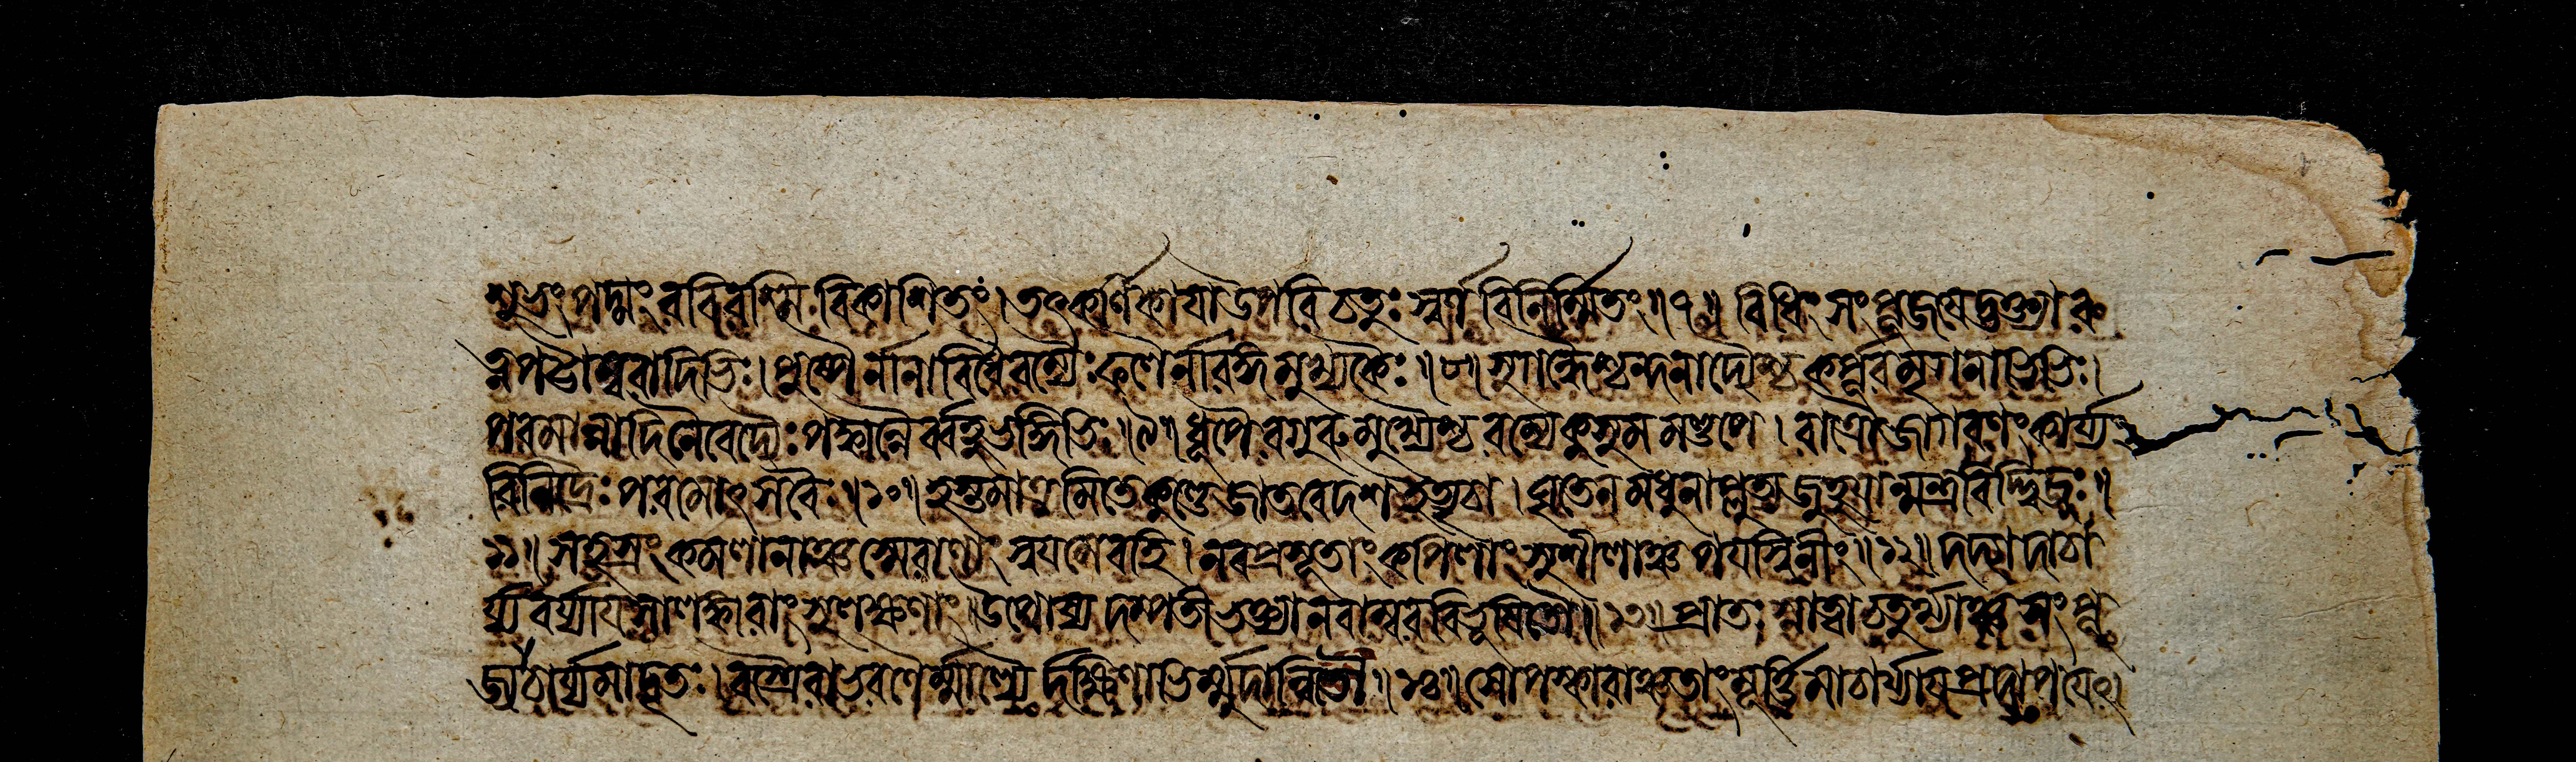 শুভং পদ্মং রবিরশ্মি বিকাশিতং। তৎকর্ণিকাযাউপরি চতুঃ স্বর্ণ বিনির্ম্মিতং॥৭॥ বিধিং সংপূজযেদ্ভক্ত্যা রক্ত
পট্টাম্বরাদিভিঃ। পুষ্পৈর্নানাবিধৈরন্যৈঃ ফলৈর্নারঙ্গমুখ্যকৈঃ॥৮॥ সুগন্ধৈশ্চন্দনাদ্যৈশ্চ কর্পূরমৃগনাভিভিঃ।
পরমান্নাদিনৈবেদ্যৈঃ পক্বান্নৈর্ব্বহুভঙ্গিভিঃ॥৯॥ ধূপৈরগুরুমুখ্যৈশ্চ রম্যে কুসুমমণ্ডপে। রাত্রৌ জাগরণং কার্য্যং
বিনিদ্রঃ পরমোৎসবৈঃ॥১০॥ হস্তমাত্রমিতে কুণ্ডে জাতবেদস হুতৃচা। ঘৃতেন মধুনাপ্লুত্য জুহুযান্মন্ত্রবিদ্দ্বিজঃ॥
১১॥ সহস্রং কমলানাঞ্চ স্মেরাণাং স্বযমেবহি। নবপ্রসূতাং কপিলাং সুশীলাঞ্চ পযস্বিনীং॥১২॥ দদ্যাদাচা
র্য্যবর্য্যায সালঙ্কারাং সুলক্ষণাং। উপোষ্য দম্পতী ভক্ত্যা নবাম্বরবিভূষিতৌ॥১৩॥ প্রাতঃ স্নাত্বা চতুর্থ্যাঞ্চ সংপূ
জ্যাচার্য্যমাদৃতঃ। বস্ত্রৈরাভরণৈর্ম্মাল্যৈ র্দক্ষিণাভির্ম্মুদান্বিতৌ॥১৪॥ সোপস্কারাঞ্চ তাং মূর্ত্তিমাচার্য্যায প্রদাপযেৎ।